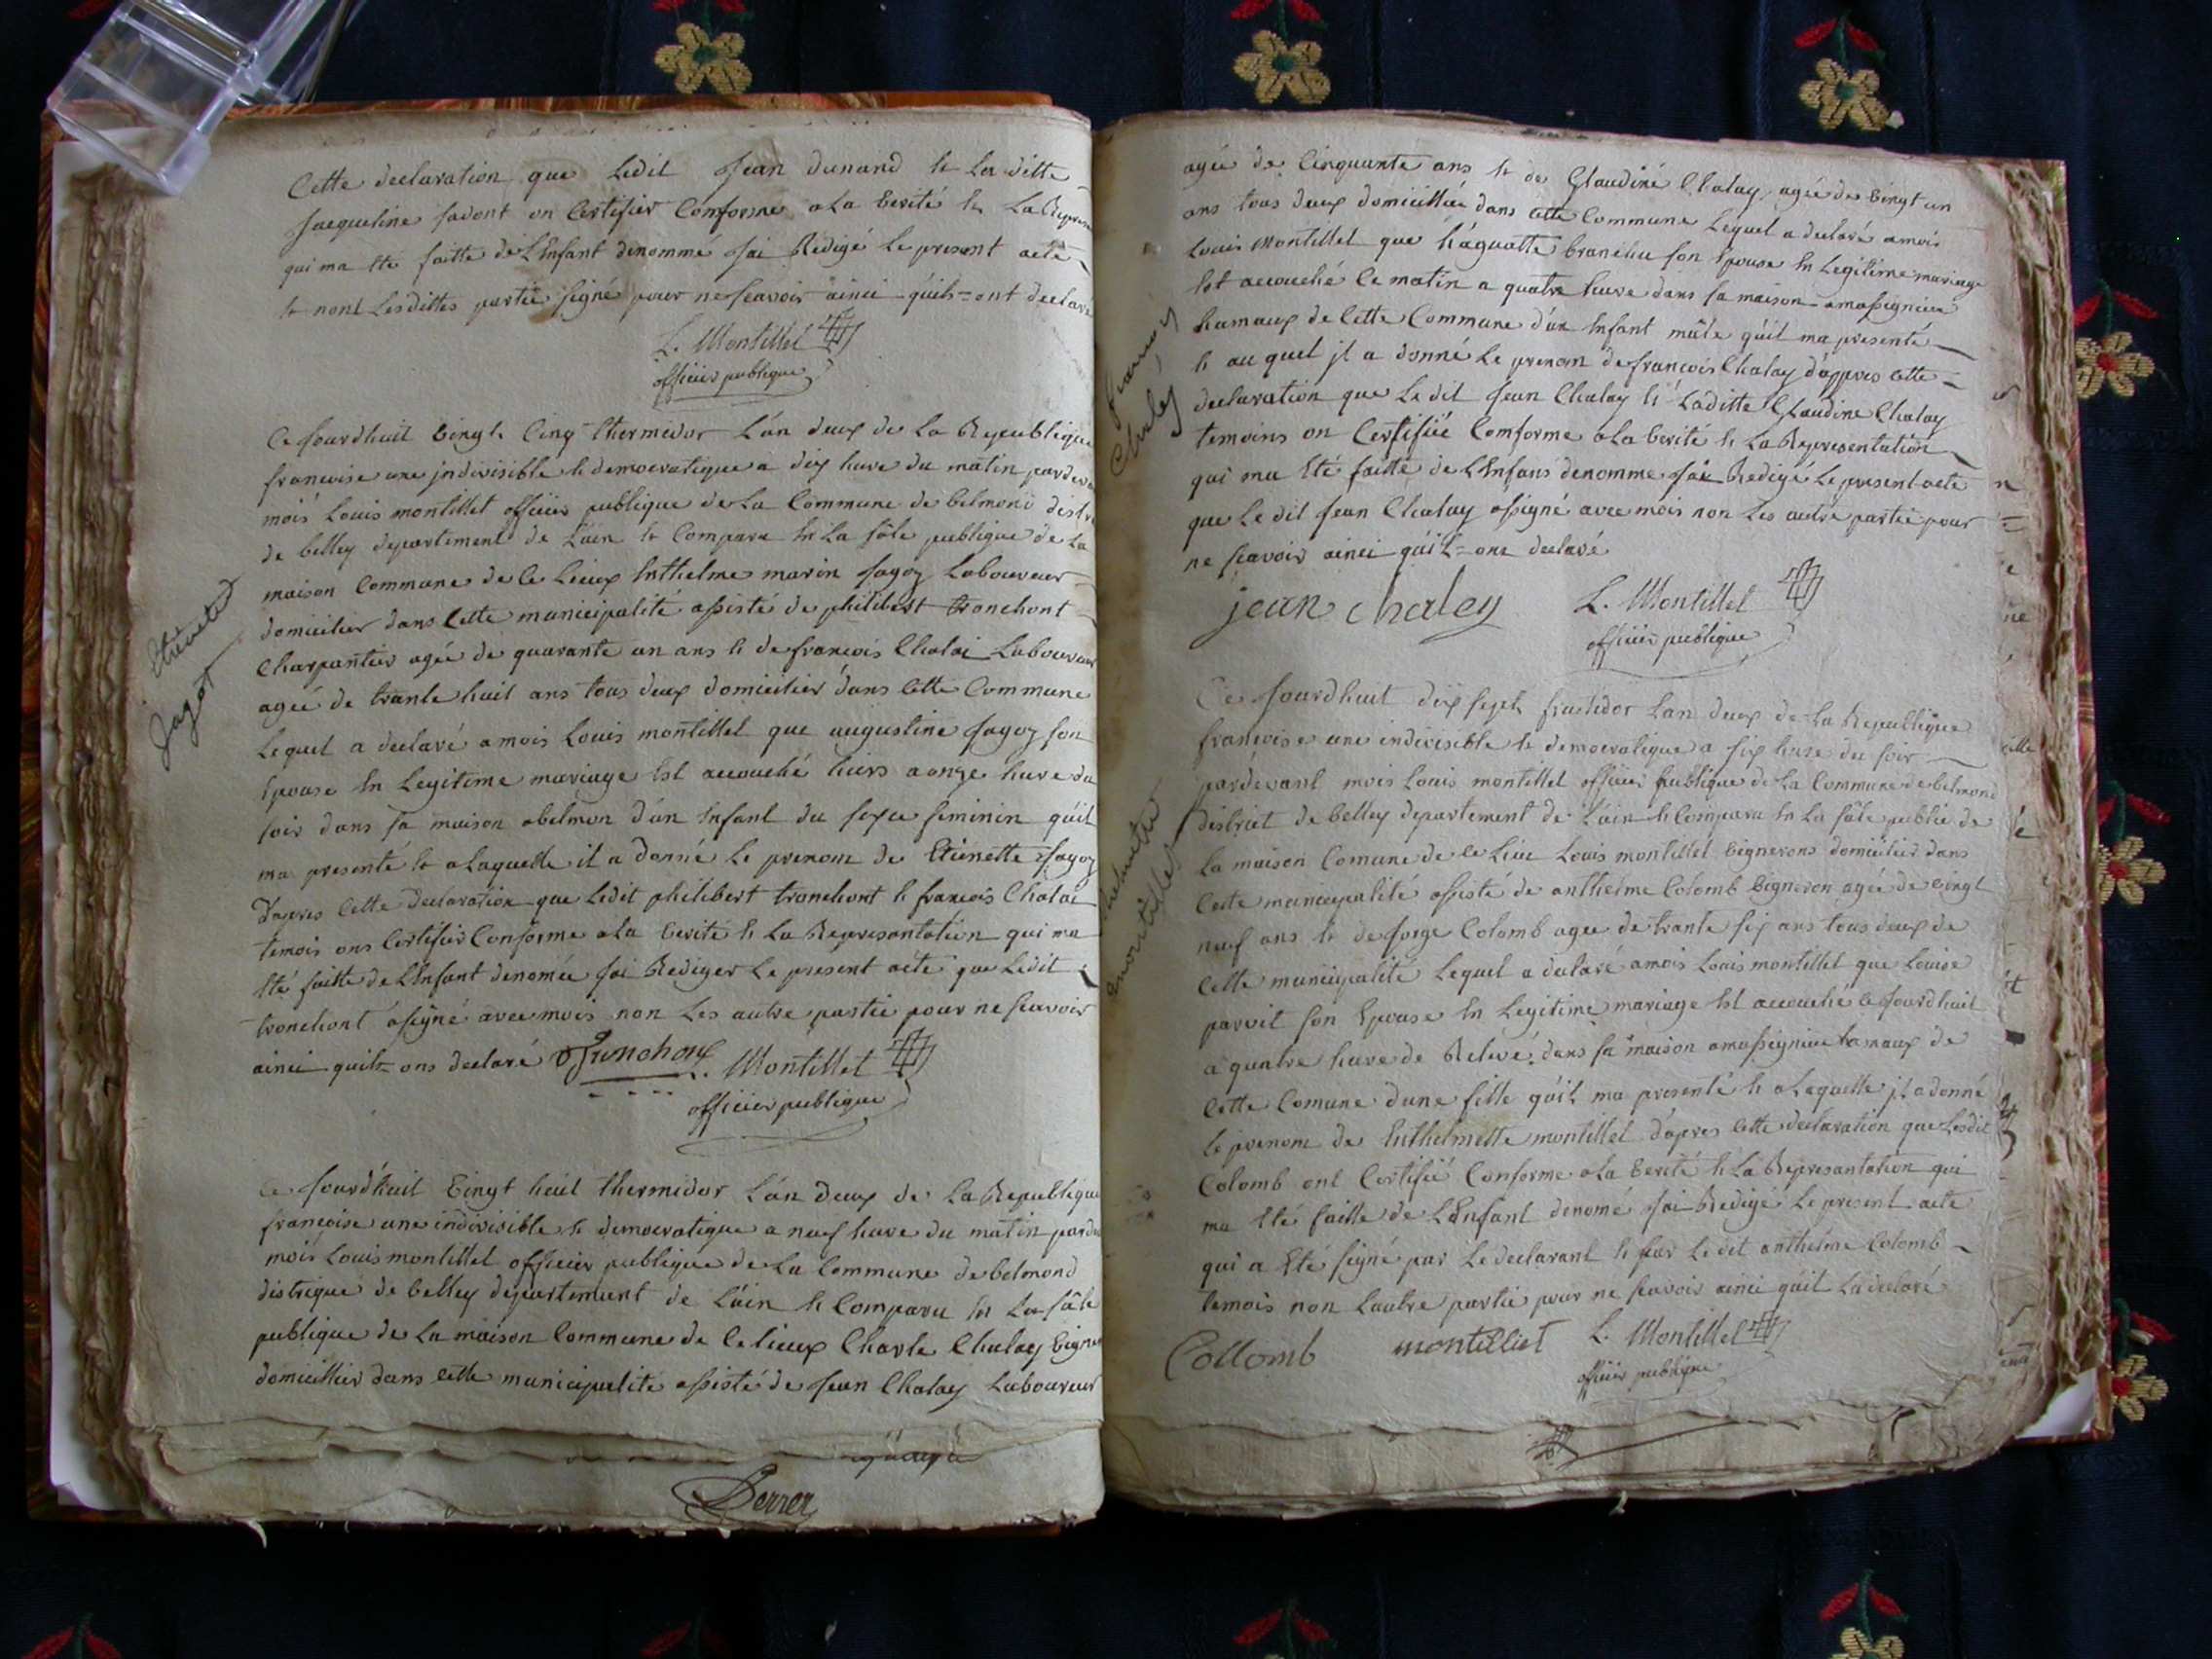 Cette declaration que Ledit Jean dunand et La ditte
Jacqueline sadont on Certifier Conforme a La Verité et La
qui ma ete faitte de L'Enfant denommé jai Redigé Le present acte
et nont Lesdittes partie signé pour ne scavoir ainci quils = ont declaré
L. Montillet
officier publique
Ce Jourdhuit vingt Cinq thermidor L'an deux de La Republique
francoise une jndivisible et democratique a dix hure du matin
mois Louis montillet officier publique de La Commune de belmond
de belley departement de L'ain et Comparu En La sâle publique de La
maison Commune de Ce Lieux Enthelme marin Jagoz Laboureur
domicilier dans Cette municipalité assisté de philibert tronchont
Charpantier agée de quarante un ans et de francois Chalai Laboureur
agée de trante huit ans tous deux domicilier dans Cette Commune
Lequel a declaré a mois Louis montillet que augustine Jagoz son
Epouse En Legitime mariage Est accouché hiers a onze hure du
soir dans sa maison abelmon d'un Enfant du sexe feminin quil
ma presenté et a Laquelle il a donné Le prenom de Etienette Jagoz
d'apres Cette declaration que Ledit philibert tronchont et francois Chalai
temois ons Certifier Conforme a La Verité et La Represantation qui ma
Eté faitte de L'Enfant denomée jai Rediger Le present acte que Ledit
tronchont a signé avec mois non Les autre partie pour ne scavoir
ainci quils= ons declaré Tronchon L. Montillet
officier publique
Etienette
Jagot
Ce Jourd'huit Vingt huit thermidor L'an Deux de La Republique
françoise une indivisible et democratique a neuf hure du matin
mois Louis montillet officier publique de La Commune de belmond
districque de belley departement de L'ain et Comparu En La sâle
publique de La maison Commune de Ce lieux Charle Chalay
domicillier dans Cette municipalité assisté de Jean Chalay Laboureur
agée de Cinquante ans et de Glaudine Chalay agée de vingt un
ans tous deux domicilliée dans Cette Commune Lequel a declaré a mois
Louis Montillet que son Epouse En Legitime mariage
Est accouché Ce matin a quatre hure dans sa maison amassignieu
hamaux de Cette Commune d'un Enfant mâle quil ma presenté
et au quel jl a donné Le prenom de françois Chalay d'appres Cette
declaration que Le dit Jean Chalay et Laditte Glaudine Chalay
temoins on Certifiée Comforme a La Verité et La Representation
qui ma Eté faitte de L'Enfans denomme jai Redigé Le present acte
que Le dit Jean Chalay assigné avec mois non Les autre partie pour
ne scavoir ainci qui L=ont declaré
jean chaley L. Montillet
officier publique
francois
Chaley
Ce Jourdhuit dix sept fructidor L'an deux de La Republique
francoise une indivisible et democratique a six hure du soir
pardevant mois Louis montillet officier publique de La Commune de belmond
district de belley departement de L'ain et Comparu En La sâle public de
La maison Comune de Ce Lieu Louis montillet Vignerons domicilier dans
Cette municipalité assisté de anthelme Colomb Vigneron agée de vingt
neuf ans et de Jorge Colomb agee de trante six ans tous deux de
Cette municipalité Lequel a declaré a mois Louis montillet que Louise
parvit son Epouse En Legitime mariage Est accouché Ce Jourdhuit
a quatre hure de Relevé dans sa maison amassignieu hamaux de
Cette Comune d'une fille qu'il ma presenté et a Laquelle jl a donné
Le prenom de Enthelmette montillet d'apres Cette declaration que Lesdit
Colomb ont Certifié Conforme a La Verité et La Represantation qui
ma Eté faitte de L'Enfant denomé jai Redigé Le present acte
qui a Eté signé par Le declarant et par Le dit anthelme Colomb
temois non L'autre partie pour ne scavoir ainci quil La declaré
Collomb montilliet L. Montillet
officier publique
montillet
Perrer